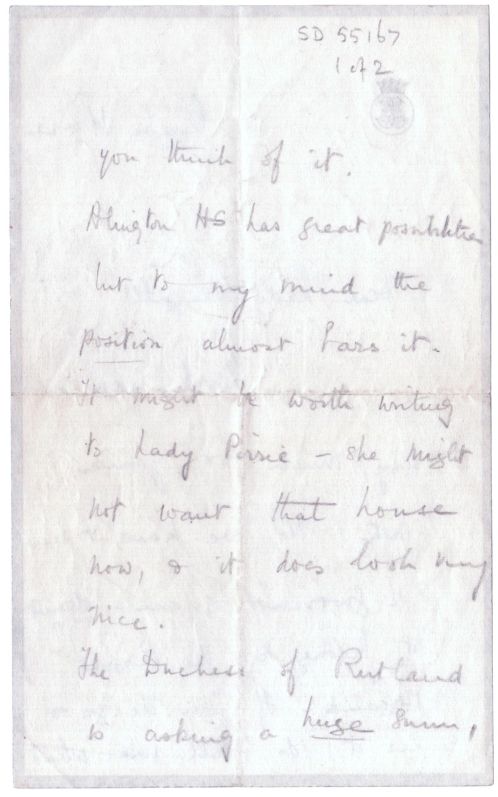 SD 55167
1 of 2
you think of it.
Alington HS has great possibilities
but to my mind the
position almost bars it.
It might be worth writing
to Lady Pirrie – she might
not want that house
now, & it does look very
nice.
The Duchess of Rutland
is asking a huge sum,